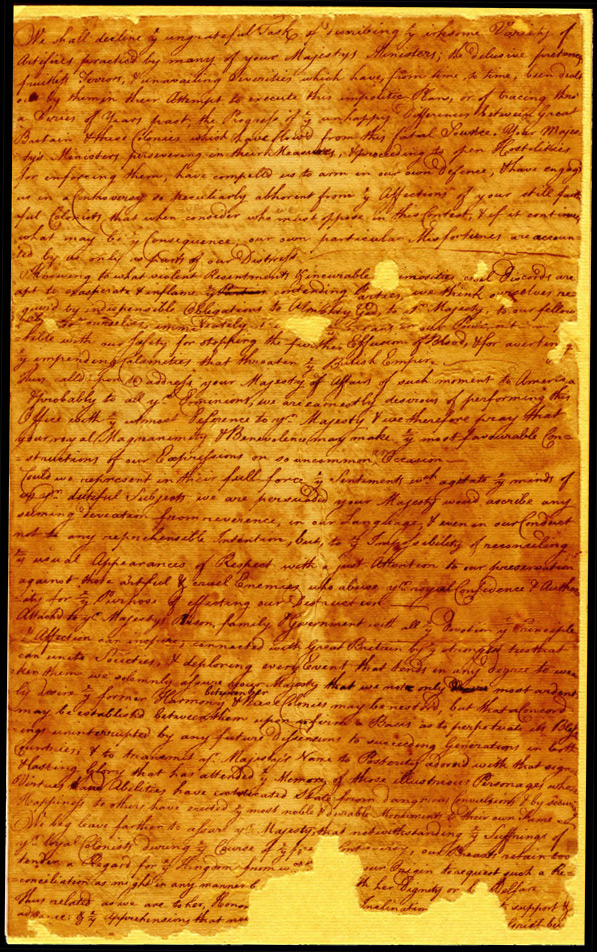 We shall decline yͤ ungrateful Task of describing yͤ irksome Variety of
Artifices practised by many of your Majestys Ministers; the delusive pretences,
fruitless Terrors, & unavailing Severities which have from time to time, been dealt
out by them in their Attempt to execute this impolitic Plan, or of tracing thro'
a Series of Years past, the Progress of yͤ unhappy Differences between Great
Britain & these Colonies which have flowd from this fatal Source. Your Majes-
ty's Ministers persevering in their Measures, & proceeding to open Hostilities
for inforcing them, have compelled us to arm in our own Defence, & have engag'd
us in a Controversy so peculiarly abhorent from yͤ Affections of your still faith
ful Colonists, that when consider who must oppose in this Contest, & if it continues,
what may be yͤ Consequence, our own particular Misfortunes are accoun
ted by us only as parts of our Distress.
Knowing to what violent Resentments & incurable mosities civil Discords are
apt to exasperate & inflame yͤ contending Parties, we think ourselves re
quired by indispensible Obligations to Almighty God, to yͬ Majesty, to our fellow
immediately in our Power, not
tible with our Safety, for stopping the further Effusion of Blood, & for averting
yͤ impending Calamities that threaten yͤ British Empire.
Thus calld upon to address your Majesty on Affairs of such moment to America
& probably to all yͬ Dominions, we are earnestly desirous of performing this
Office with yͤ utmost Deference to yͬ Majesty, & we therefore pray that
your royal Magnanimity & Benevolence may make yͤ most favourable Con=
=structions of our Expressions on so uncommon an Occasion—
Could we represent in their full force yͤ Sentiments wͨh agitate yͤ minds of
us yͬ dutiful Subjects, we are persuaded your Majesty would ascribe any
seeming deviation from reverence, in our Language, & even in our Conduct
not to any reprehensible Intention, but, to yͤ Impossibility of reconciling
yͤ usual Appearances of Respect with a just Attention to our preservation
against those artful & cruel Enemies, who abuse yͬ royal Confidence & Autho=
rity for yͤ Purpose of effecting our Destruction—
Attachd to yͬ Majestys Person, family & Government with all yͤ Devotion yͭ Principle
& Affection can inspire, connected with Great Britain by yͤ strongest ties that
can unite Societies, & deploring every Event that tends in any degree to wea
ken them we solemnly assure your Majesty that we not only most ardent
ly desire yͤ former Harmony between her & these Colonies may be restored but that a Concord
may be established between them upon so firm a Basis as to perpetuate its Bles
sings uninterrupted by any future Dissensions to succeeding Generations in both
Countries; & to transmit yͬ Majesty's Name to Posterity adorned with that signal
& lasting Glory that has attended yͤ Memory of those illustrious Personages whose
Virtues and Abilities have extricated States from dangerous Convulsions & by securing
Happiness to others have erected yͤ most noble & durable Monuments to their own Fame
We beg leave farther to assure yͬ Majesty, that notwithstanding yͤ Sufferings of
yͬ loyal Colonists during yͤ Course of yͤ Controversy, our Breasts retain too
tender a Regard for yͤ Kingdom from our Origin to request such a Re=
=conciliation as might in any manner b th her Dignity or Welfare
Thus related as we are to her, Honor Inclination support &
advance: & yͤ Apprehensions that now